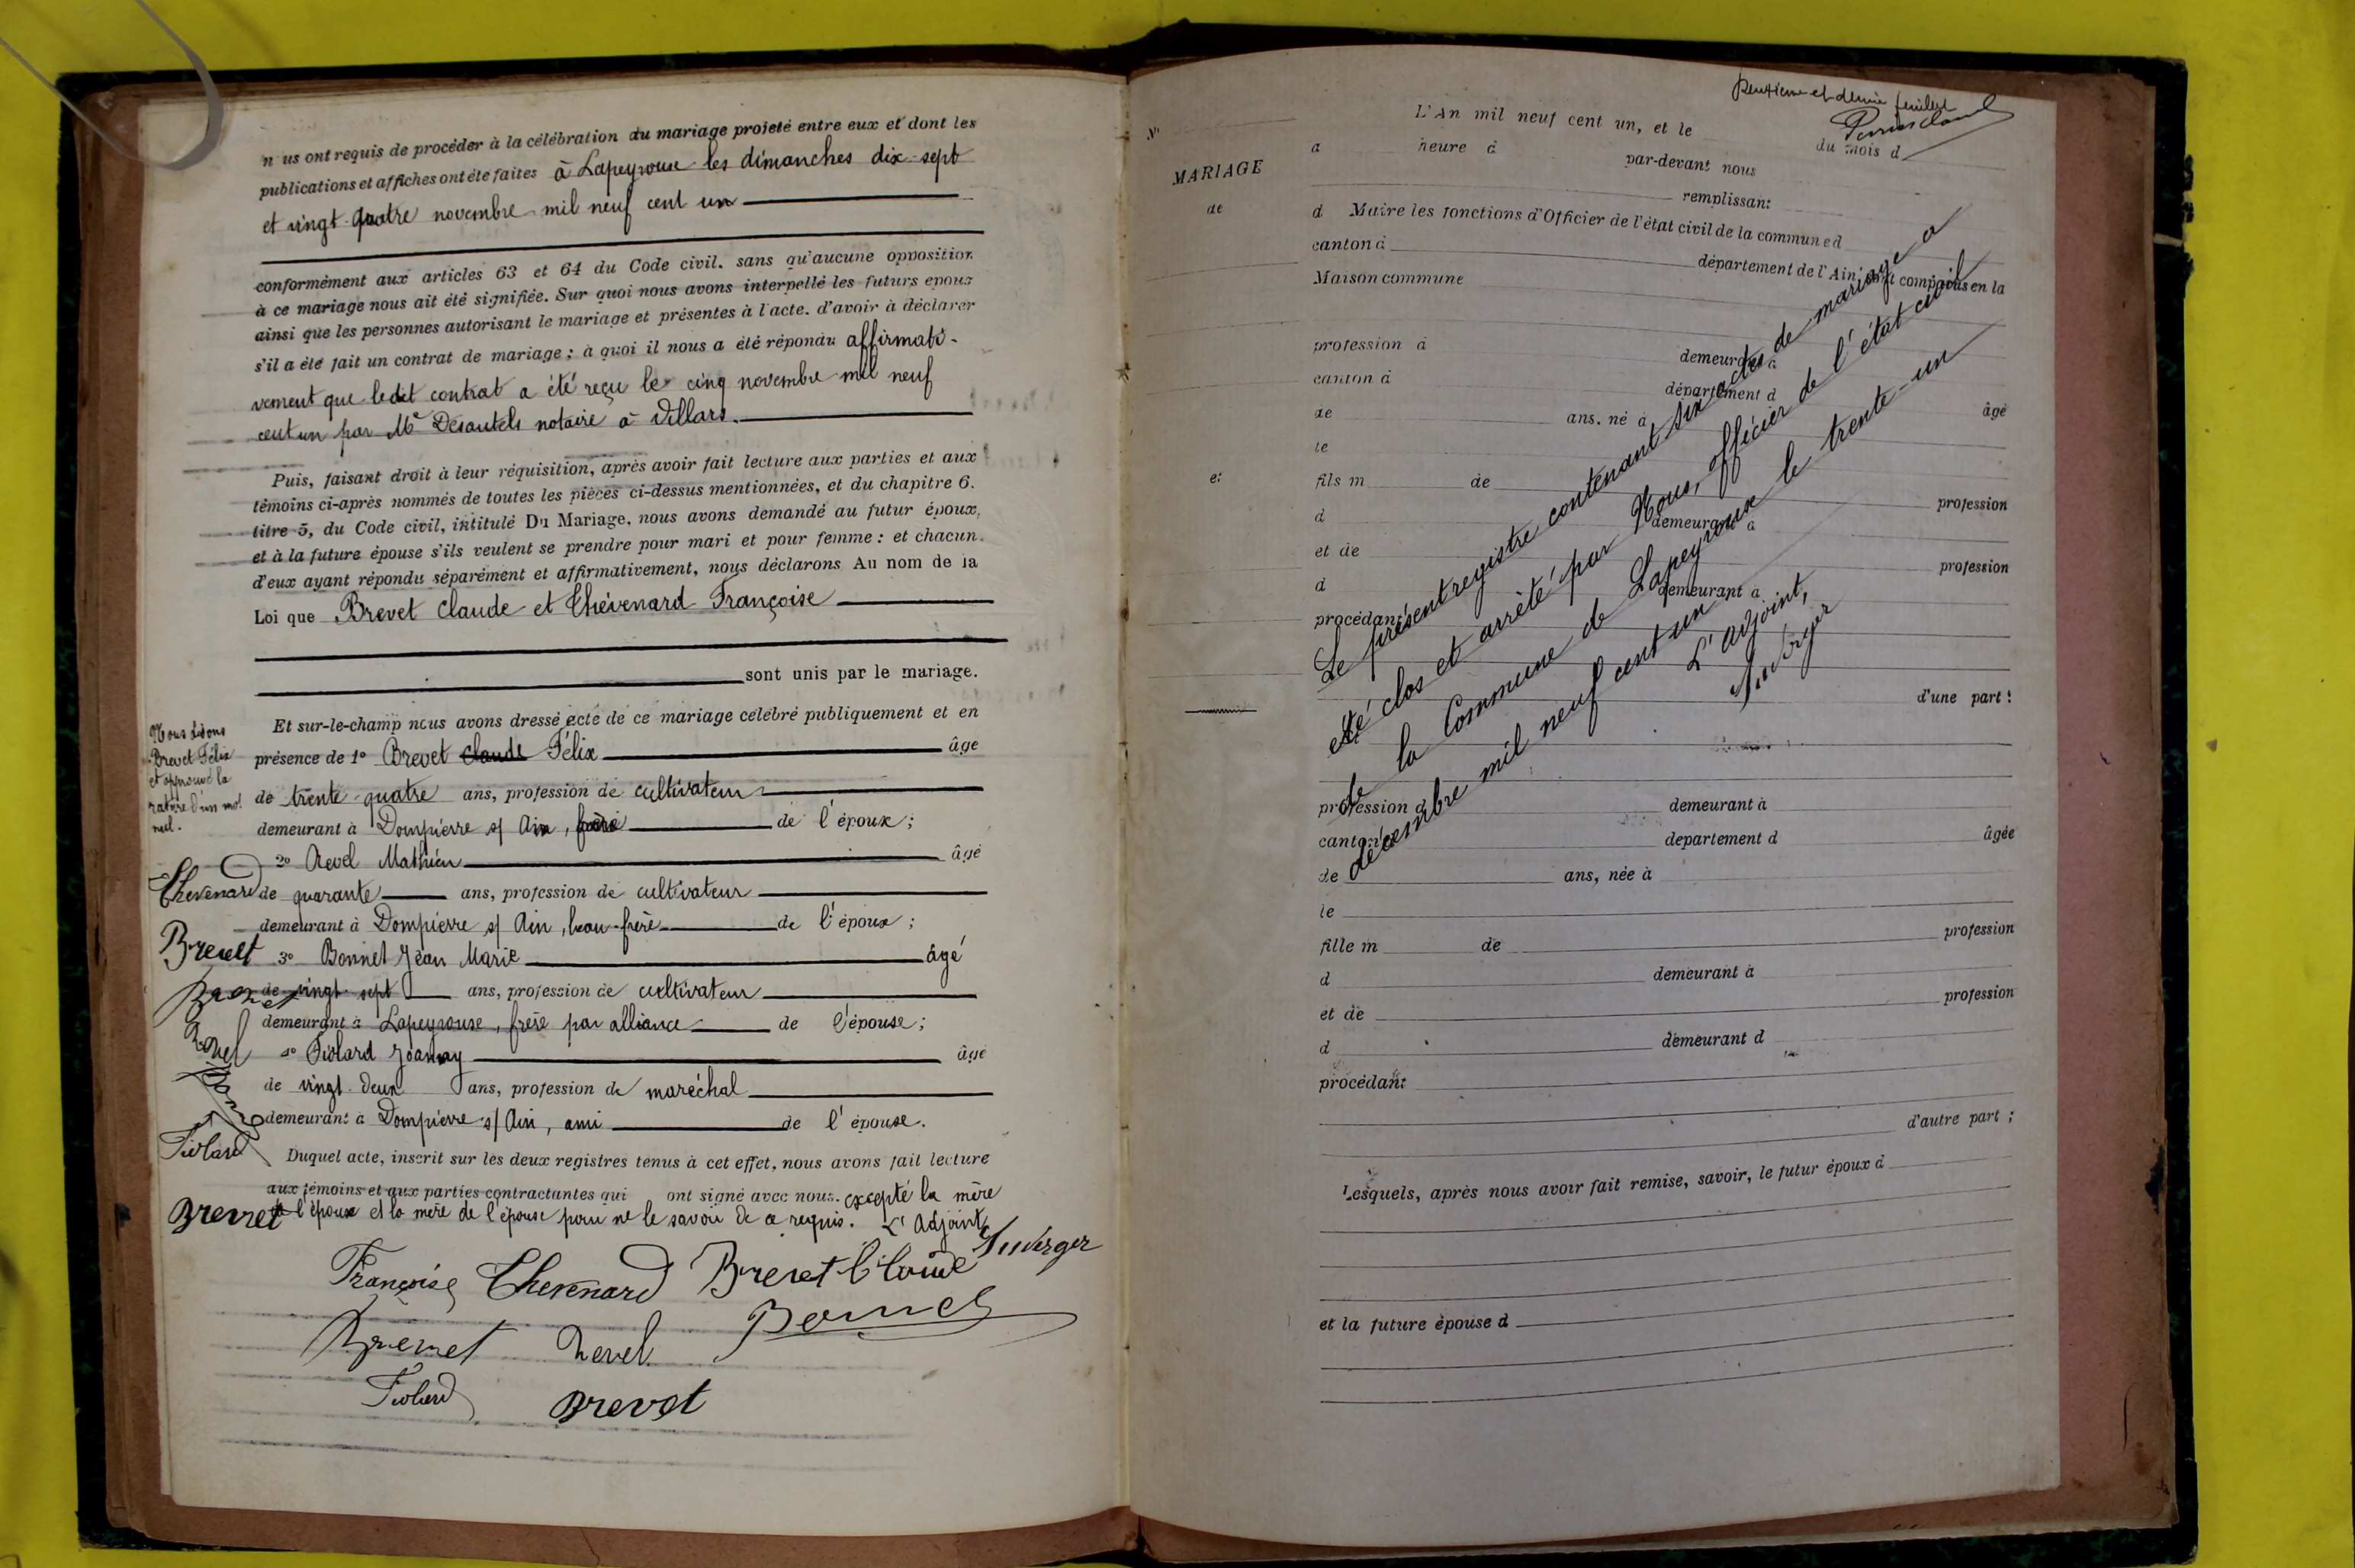 n us ont requis de procéder à la célébration du mariage projeté entre eux et dont les
publications et affiches ont été faites à Lapeyrouse les dimanches dix-sept
et vingt-quatre novembre mil neuf cent un
conformément aux articles 63 et 64 du Code civil. sans qu'aucune opposition
à ce mariage nous ait été signifiée. Sur quoi nous avons interpellé les futurs epoux
ainsi que les personnes autorisant le mariage et présentes à l'acte. d'avoir à déclarer
s'il a été fait un contrat de mariage ; à quoi il nous a été répondu affirmati-
vement que ledit contrat a été reçu le cinq novembre mil neuf
cent un par Me Désautels notaire à Villars.
Puis, faisant droit à leur réquisition, après avoir fait lecture aux parties et aux
témoins ci-après nommés de toutes les pièces ci-dessus mentionnées, et du chapitre 6.
titre 5, du Code civil, intitulé Du Mariage, nous avons demandé au futur époux,
et à la future épouse s'ils veulent se prendre pour mari et pour femme : et chacun.
d'eux ayant répondu séparément et affirmativement, nous déclarons Au nom de la
Loi que Brevet Claude et Chévenard Françoise
sont unis par le mariage.
Et sur-le-champ nous avons dressé acte de ce mariage célébré publiquement et en
Nous disons
Brevet Félix
et approuvé la
rature d'un mot
nul.
présence de 1° Brevet Claude Félix âge
de trente-quatre ans, profession de cultivateur
demeurant à Dompierre s/ Ain, frère de l'époux ;
2° Revel Mathieu âgé
Chevenard
de quarante ans, profession de cultivateur
demeurant à Dompierre s/ Ain, beau-frère de l'époux ;
Brevet
3° Bonnet Jean Marie âgé
de vingt-sept ans, profession de cultivateur
demeurant à Lapeyrouse, frère par alliance de l'épouse ;
Revel
4° Fiolard Joanny âgé
de vingt-deux ans, profession de maréchal
demeurant à Dompierre s/ Ain, ami de l'épouse.
Fiolard
Duquel acte, inscrit sur les deux registres tenus à cet effet, nous avons fait lecture
aux témoins et aux parties contractantes qui ont signé avec nous. excepté la mère
Brevet
de l'époux et la mère de l'épouse pour ne le savoir de ce requis. L'Adjoint,
Françoise Chevenard Brevet Claude
Brevet Revel Bonnet
Fiolard Brevet
Deuxième et dernier feuillet
L'An mil neuf cent un, et le du mois d
N°
MARIAGE
de
et
a heure à par-devant nous
remplissant
d Maire les fonctions d'Officier de l'état civil de la commune d
canton d département de l'Ain, ont comparus en la
Maison commune
profession d demeurant à
canton d département d âgé
de ans. né à
le
fils m de profession
d demeurant à
et de profession
d demeurant à
procédant
d'une part :
Le présent registre contenant six actes de mariage a
été clos et arrêté par Nous, officier de l'état civil
de la Commune de Lapeyrouse le trente-un
décembre mil neuf cent un
L'Adjoint,
profession d demeurant à
canton d departement d âgée
de ans, née à
le
fille m de profession
d demeurant à
et de profession
d demeurant d
procédant
d'autre part ;
Lesquels, après nous avoir fait remise, savoir, le futur époux d
et la future épouse d